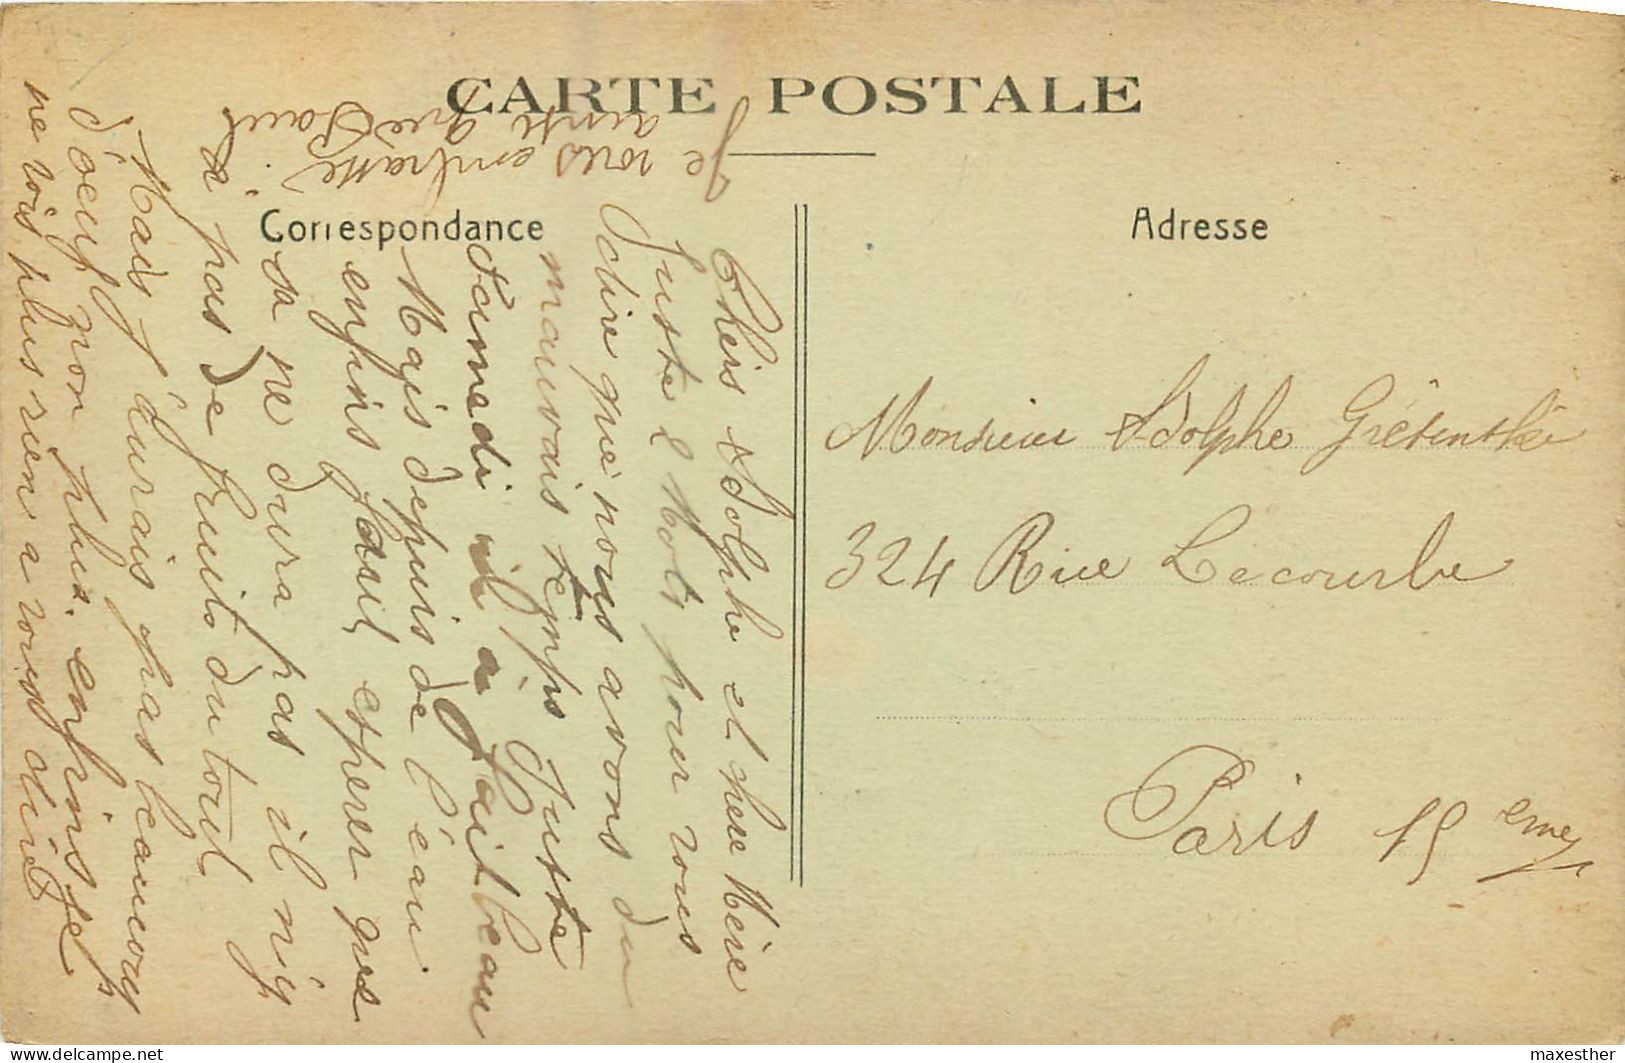 CARTE POSTALE
Correspondance
Adresse
Chers Adolphe et chere Mère
Juste 2 Mots pour vous
dire que nous avons du
mauvais temps Juste
Samedi il a fait beau
Mais depuis de l'eau
enfins faut esperer que
sa ne dura pas il n'y
a pas de fruits du tout
Mais j'eurais pas beaucoup
d'oeuf non plus. enfins je
ne vois plus rien a vous dire
Je vous embrasse
ainsi que Paul
Monsieur Adolphe
324 Rue Lecourbe
Paris 15 eme
delcampe.net
maxesther